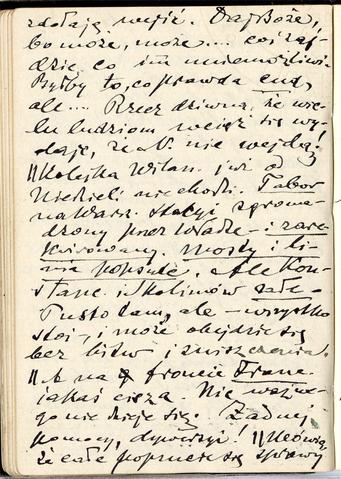 zdołają wejść. Daj Boże,
bo może, może.... coś zaj-
dzie, co im uniemożliwi.
Byłby to, co prawda cud,
ale.... Rzecz dziwna, że wie-
lu ludziom wciąż się wy-
daje, że ... nie wejdą!
|| Kolejka Wilan. już od
Niedzieli nie chodzi. Tabor
na Warsz. stacyi zgroma-
dzony przez Władze - i zare-
kwirowany. Mosty i li-
nia popsute. Ale Kon-
stanc. i Skolimów całe -
Pusto tam, ale - wszystko
stoi -, i może obejdzie się
bez bitew i zniszczenia.
|| A na froncie Franc.
jakaś cisza. Nic ważne-
go nie dzieje się. Żadnej
pomocy, dywersyi! || Mówią,
że całe ... się sprawy